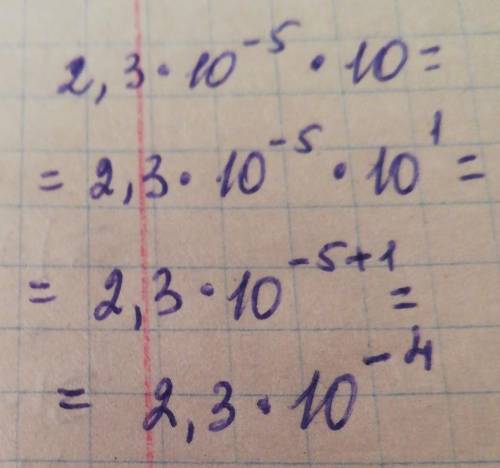 2,3·10⁻⁵·10=
=2,3·10⁻⁵·10¹=
=2,3·10⁻⁵⁺¹=
=2,3·10⁻⁴